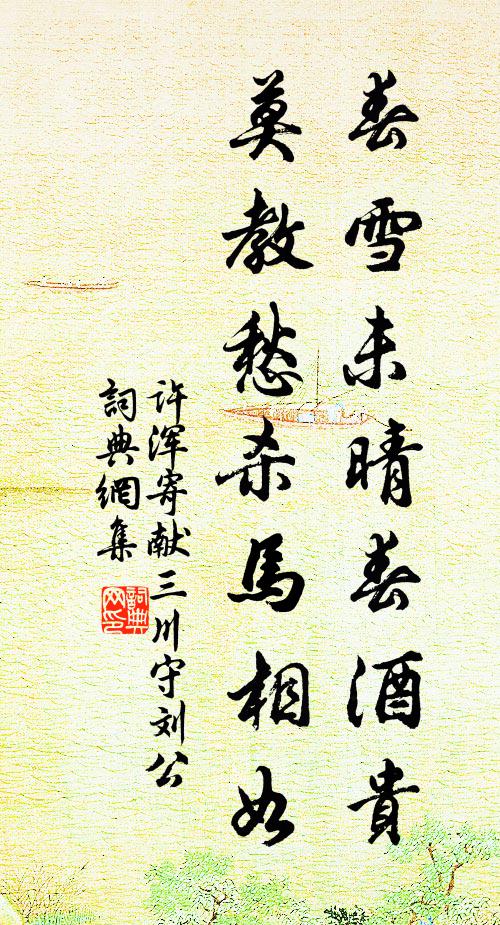 春雪未晴春酒貴
莫教愁杀馬相如
许浑寄献三川守刘公
詞典網集
詞典网印